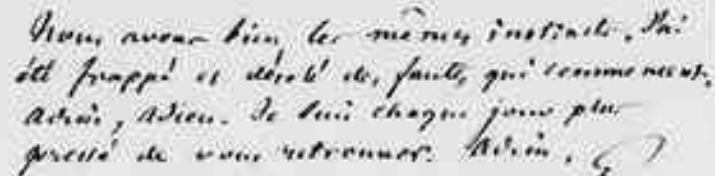 Nous avons bien les mêmes instincts. J'ai
été frappé et désolé des fautes qui commencent.
Adieu, adieu. Je suis chaque jour plus
pressé de vous retrouver. Adieu.